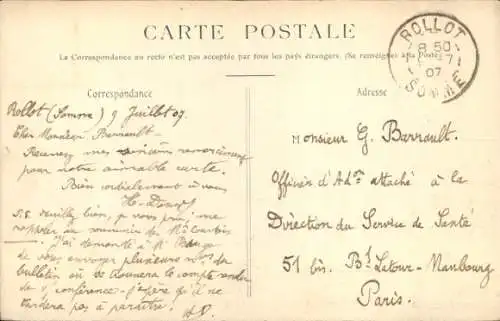 CARTE POSTALE
La Correspondance au recto n'est pas acceptée par tous les pays étrangers. (Se renseigner à la Poste)
ROLLOT
8 50
7
07
SOMME
Correspondance
Rollot (Somme) 9 Juillet 07
Cher Monsieur Barrault
Recevez mes remerciements
pour votre aimable carte.
Bien cordialement à vous
P.S. veuillez bien, je vous prie, me
rappeler au souvenir de Mr Courtois
J'ai demandé à Mr
de vous envoyer plusieurs nos du
bulletin où se donnera le compte rendu
de conférence - j'espère qu'il ne
tardera pas à paraître. HD.
Adresse
Monsieur G. Barrault.
Officier d'Adon attaché à la
Direction du Service de Santé
51 bis. Bd Latour-Maubourg
Paris.